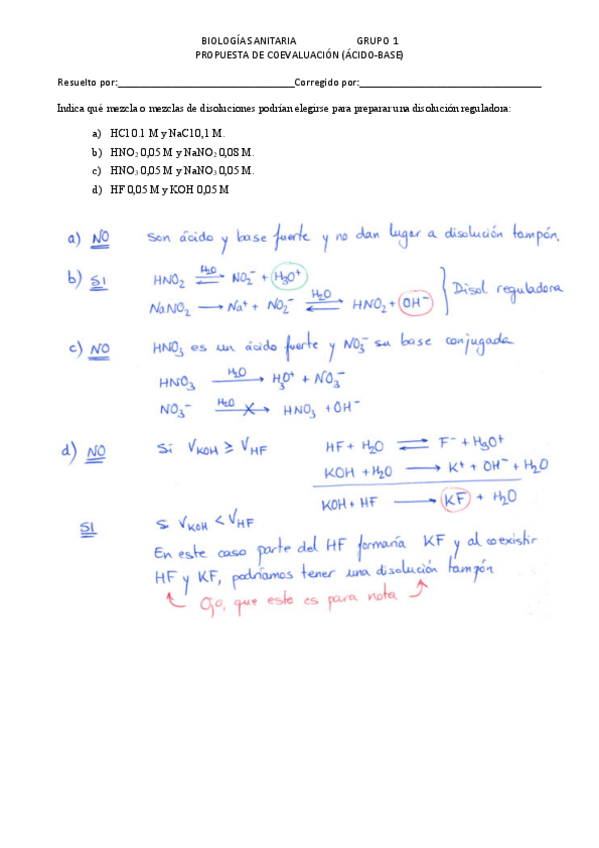 BIOLOGÍA SANITARIA GRUPO 1
PROPUESTA DE COEVALUACIÓN (ÁCIDO-BASE)
Resuelto por:________________Corregido por:________________
Indica qué mezcla o mezclas de disoluciones podrían elegirse para preparar una disolución reguladora:
a) HCl 0.1 M y NaCl 0,1 M.
b) HNO₂ 0,05 M y NaNO₂ 0,08 M.
c) HNO₃ 0,05 M y NaNO₃ 0,05 M.
d) HF 0,05 M y KOH 0,05 M
a) NO Son ácido y base fuerte y no dan lugar a disolución tampón.
b) SI HNO₂ ⇌ (H₂O) NO₂⁻ + H₃O⁺
NaNO₂ → Na⁺ + NO₂⁻ ⇌ (H₂O) HNO₂ + OH⁻ } Disol reguladora
c) NO HNO₃ es un ácido fuerte y NO₃⁻ su base conjugada
HNO₃ → (H₂O) H₃O⁺ + NO₃⁻
NO₃⁻ ↛ (H₂O) HNO₃ + OH⁻
d) NO Si V_KOH ≥ V_HF HF + H₂O ⇌ F⁻ + H₃O⁺
KOH + H₂O → K⁺ + OH⁻ + H₂O
KOH + HF → KF + H₂O
SI Si V_KOH < V_HF
En este caso parte del HF formaría KF y al coexistir
HF y KF, podríamos tener una disolución tampón
Ojo, que este es para nota